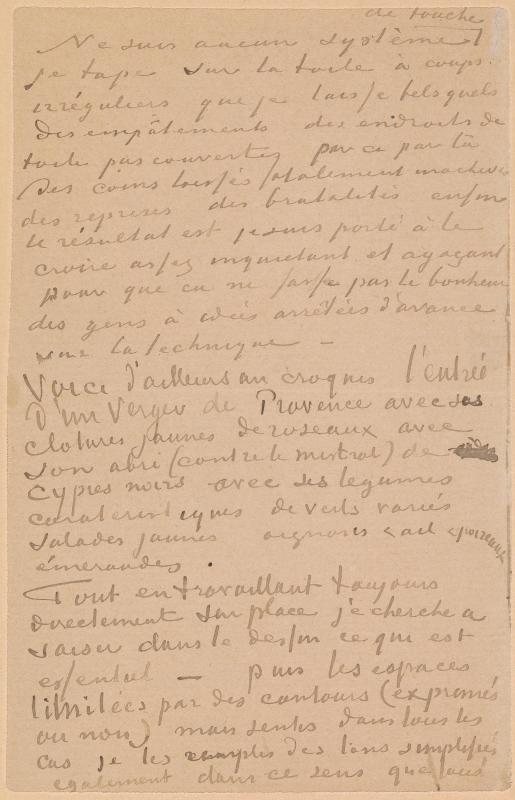 de touche
Ne suis aucun système
je tape sur la toile à coups
irréguliers que je laisse tels quels
Des empâtements des endroits de
toile pas couverts par ci par là
Des coins laissés totalement inachevés
des reprises des brutalités enfin
le résultat est je suis porté à le
croire assez inquiétant et agaçant
pour que ca ne fasse pas le bonheur
des gens à idées arrêtées d'avance
sur la technique –
Voici d'ailleurs un croquis l'entrée
D'un Verger de Provence avec ses
clotures jaunes de roseaux avec
son abri (contre le mistral) de
Cyprès noirs avec ses legumes
caracteristiques de verts variés
salades jaunes oignons ail poireaux
émeraudes.
Tout en travaillant toujours
directement sur place je cherche a
saisir dans le dessin ce qui est
essentiel – puis les espaces
limitées par des contours (exprimés
ou non) mais sentis dans tous les
cas je les remplis des tons simplifiés
egalement dans ce sens que tout